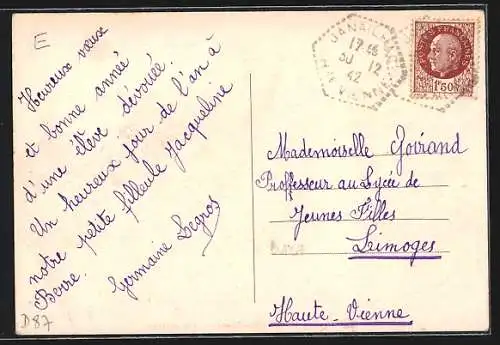 E
Heureux vœux
et bonne année
d'une élève dévouée.
Un heureux jour de l'an à
notre petite filleule Jacqueline
Germaine Legros
D87
17
30 12
42
POSTES FRANÇAISES
1F50
Mademoiselle Goirand
Proffesseur au Lycée de
Jeunes Filles
Limoges
Haute-Vienne